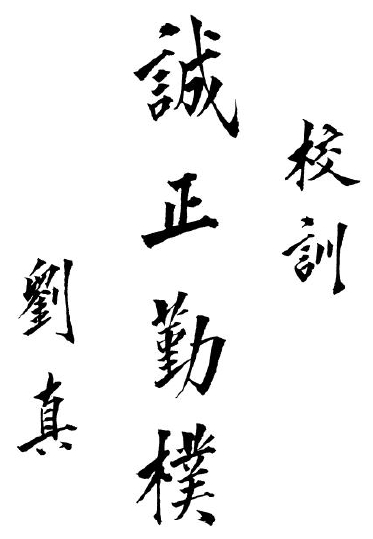 校訓
誠正勤樸
劉真